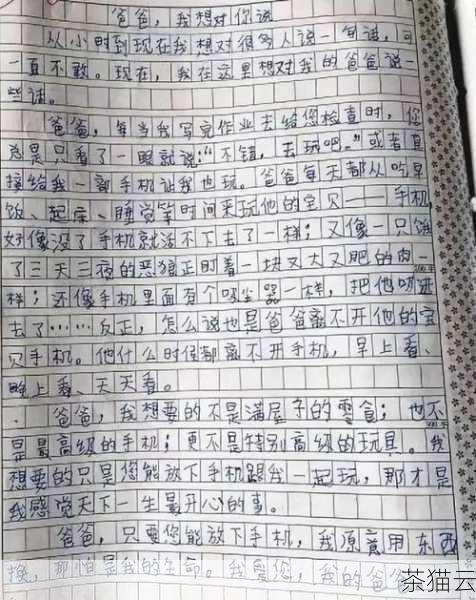 爸爸，我想对你说
从小时到现在我想对很多人说一句话，可
一直不敢。现在，我在这里想对我的爸爸说一
些话。
爸爸，每当我写完作业去给您检查时，您
总是只看了一眼就说：“不错，去玩吧。”或者直
接给我一部手机让我也玩。爸爸每天都从吃早
饭、起床、睡觉等时间来玩他的宝贝——手机，
好像没了手机就活不下去了一样；又像一只饿
了三天三夜的恶狼正盯着一块又大又肥的肉一
样；还像手机里面有个吸尘器一样，把他吸进
去了……反正，怎么说也是爸爸离不开他的宝
贝手机。他什么时候都离不开手机，早上看、
晚上看、天天看。
爸爸，我想要的不是满屋子的零食；也不
是最高级的手机；更不是特别高级的玩具。我
想要的只是您能放下手机跟我一起玩，那才是
我感觉天下一生最开心的事。
爸爸，只要您能放下手机，我愿意用东西
换，那怕是我的生命。我爱您，我的爸爸
茶猫云